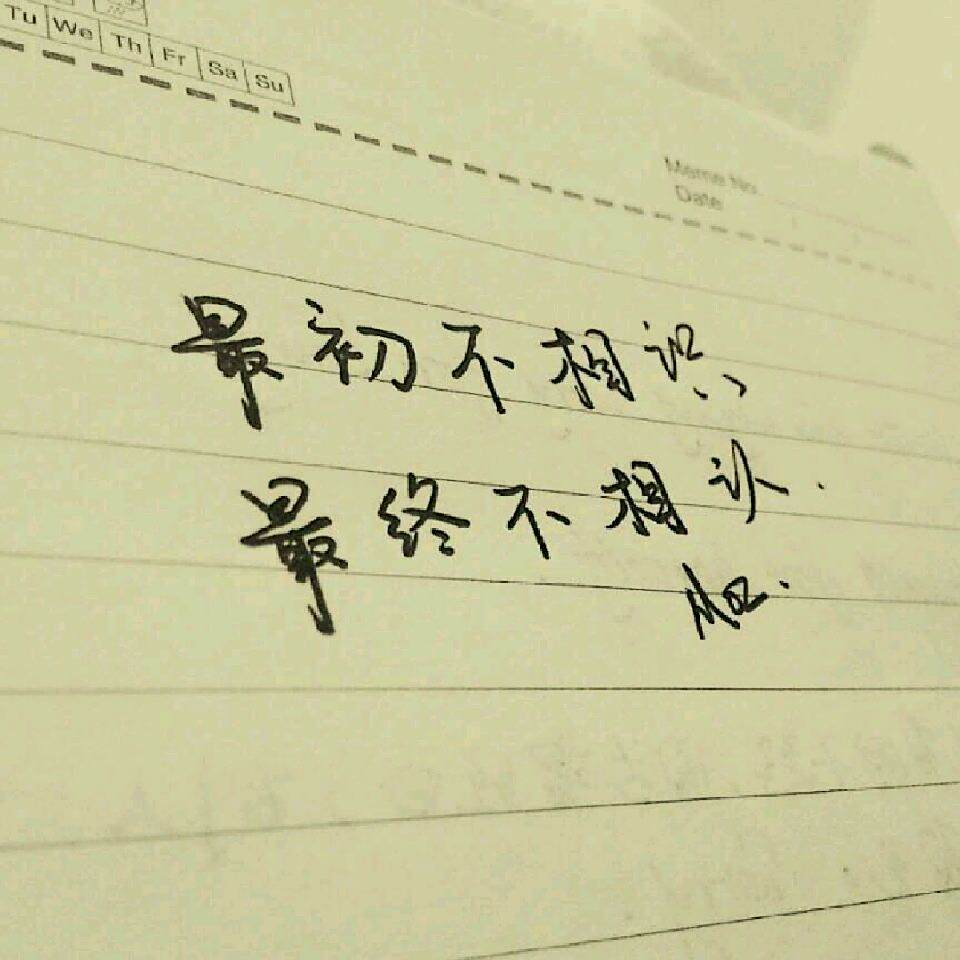 Tu We Th Fr Sa Su
Memo No.
Date
最初不相识,
最终不相认.